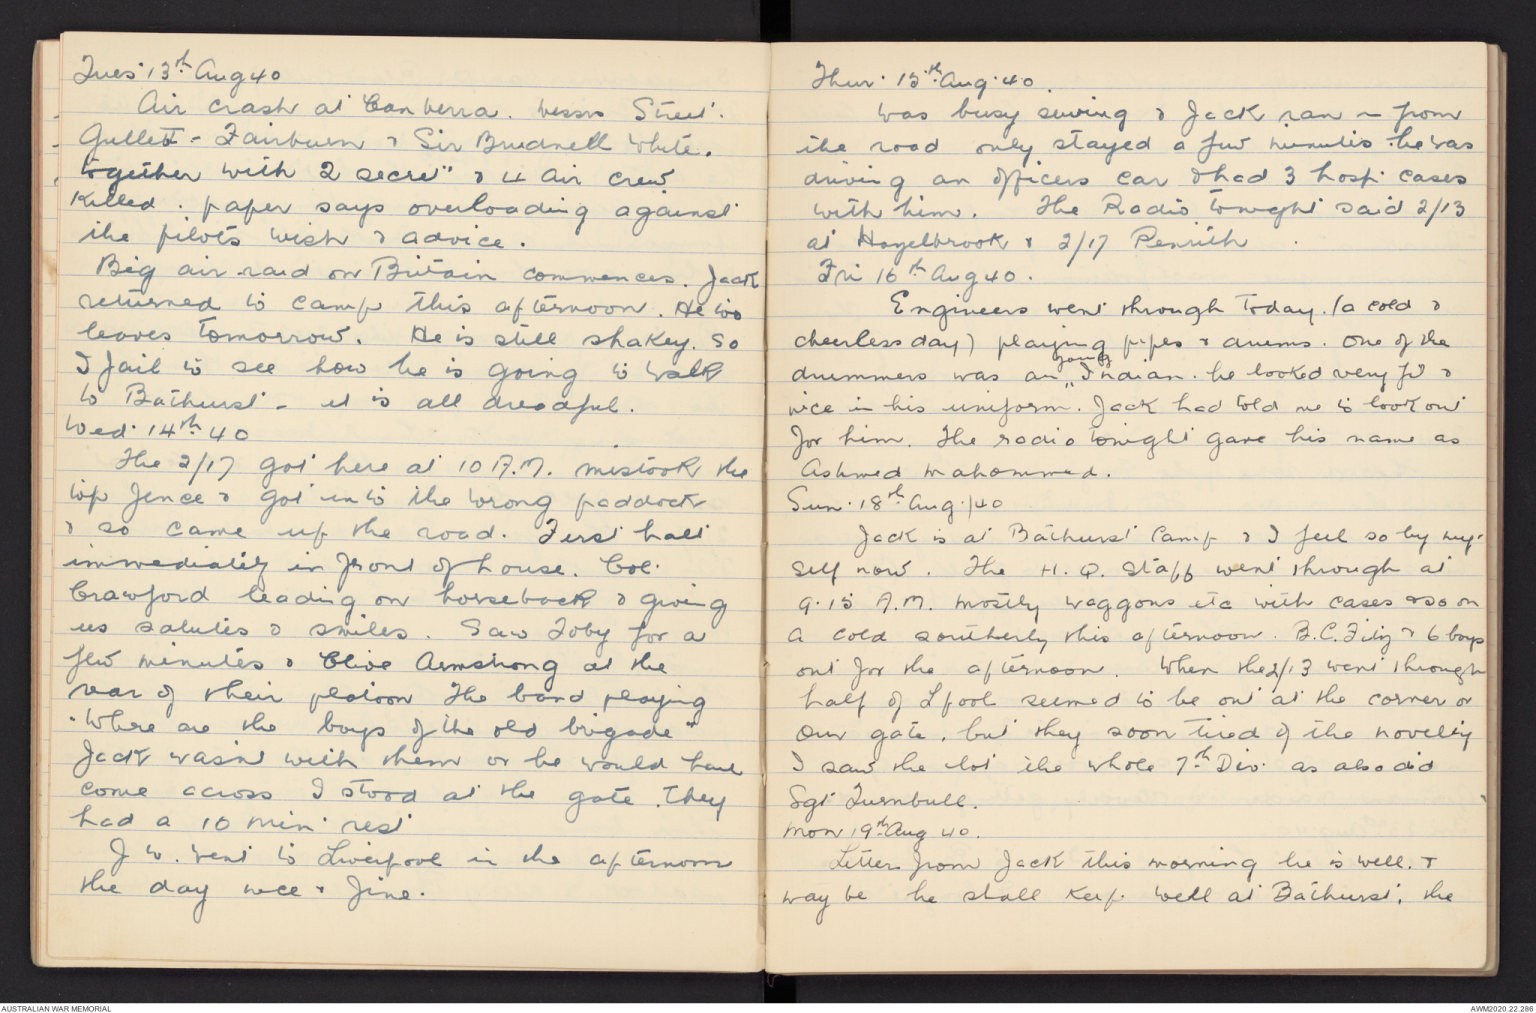 Tues 13th Aug 40
Air crash at Canberra. Messrs Street.
Gullett - Fairburn & Sir Brudnell White.
together with 2 secre" & 4 air crew
killed. paper says overloading against
the pilots wish & advice.
Big air raid on Britain commences. Jack
returned to camp this afternoon. He too
leaves tomorrow. He is still shakey. So
I fail to see how he is going to walk
to Bathurst - it is all dreadful.
Wed. 14th 40
The 2/17 got here at 10 A.M. mistook the
top fence & got into the wrong paddock
& so came up the road. First halt
immediately in front of house. Col.
Crawford leading on horseback & giving
us salutes & smiles. Saw Toby for a
few minutes & Clive Armstrong at the
rear of their platoon The band playing
"Where are the boys of the old brigade"
Jack wasn't with them or he would have
come across I stood at the gate. They
had a 10 min. rest
J W. went to Liverpool in the afternoon
the day nice & fine.
Thur. 15th Aug. 40.
Was busy sewing & Jack ran in from
the road only stayed a few minutes. he was
driving an officers car & had 3 hosp. cases
with him. The Radio tonight said 2/13
at Hazelbrook & 2/17 Penrith.
Fri 16th Aug 40.
Engineers went through today. (a cold &
cheerless day) playing pipes & drums. One of the
young
drummers was an ,, Indian. he looked very fit &
nice in his uniform. Jack had told me to look out
for him. The radio tonight gave his name as
Ashmed Mahommed.
Sun. 18th Aug./40
Jack is at Bathurst Camp & I feel so by my-
self now. The H.Q. Staff went through at
9.15 A.M. mostly waggons etc with cases & so on
A cold southerly this afternoon. B.C. Fitz & 6 boys
out for the afternoon. When the 2/13 went through
half of Lpool seemed to be out at the corner or
our gate, but they soon tired of the novelty
I saw the lot the whole 7th Div. as also did
Sgt Turnbull.
Mon 19th Aug 40.
Letter from Jack this morning he is well. &
may be he shall keep well at Bathurst, the
AUSTRALIAN WAR MEMORIAL
AWM2020.22.286